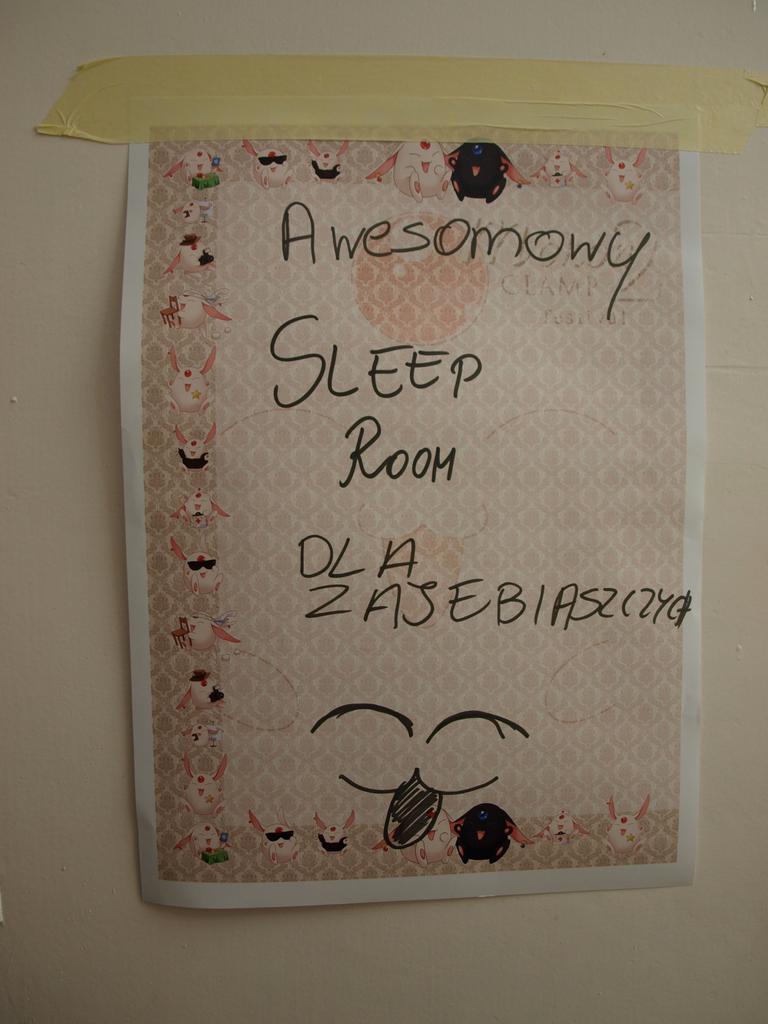 Awesomowy
CLAMP 2
festival
SLEEP
ROOM
DLA
ZAJEBIASZCZYCH